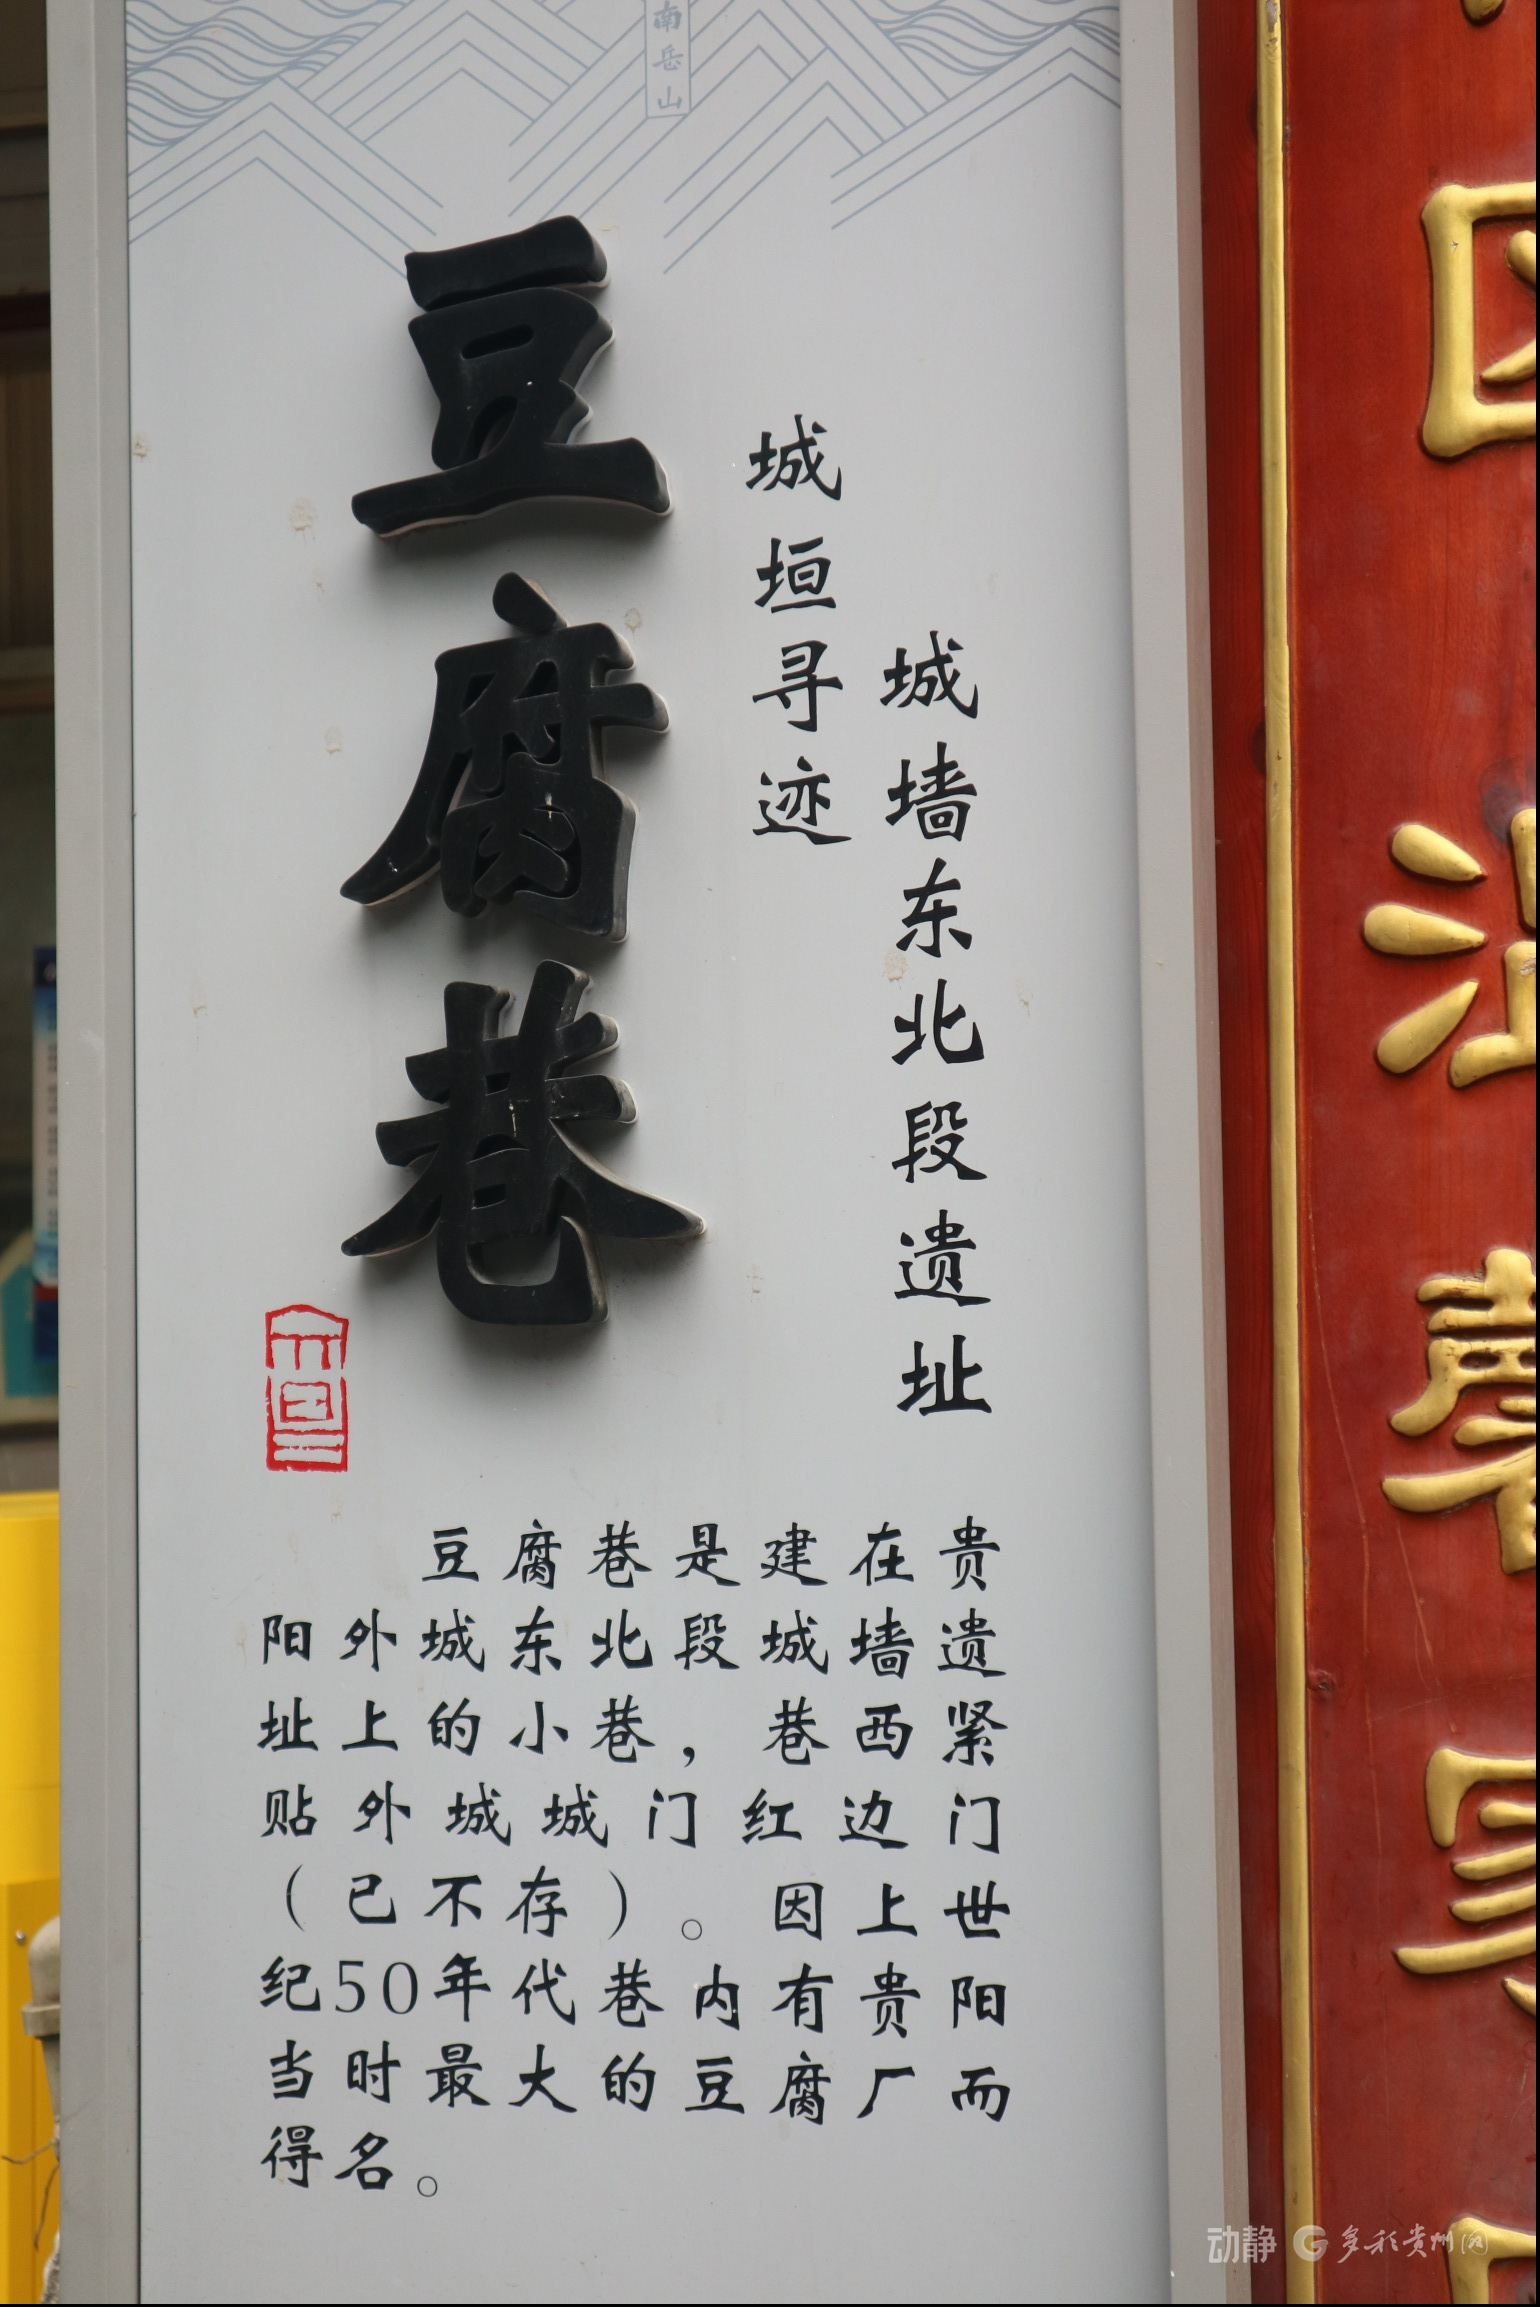 南岳山
豆腐巷
城垣寻迹
城墙东北段遗址
豆腐巷是建在贵
阳外城东北段城墙遗
址上的小巷，巷西紧
贴外城城门红边门
（已不存）。因上世
纪50年代巷内有贵阳
当时最大的豆腐厂而
得名。
动静 多彩贵州网